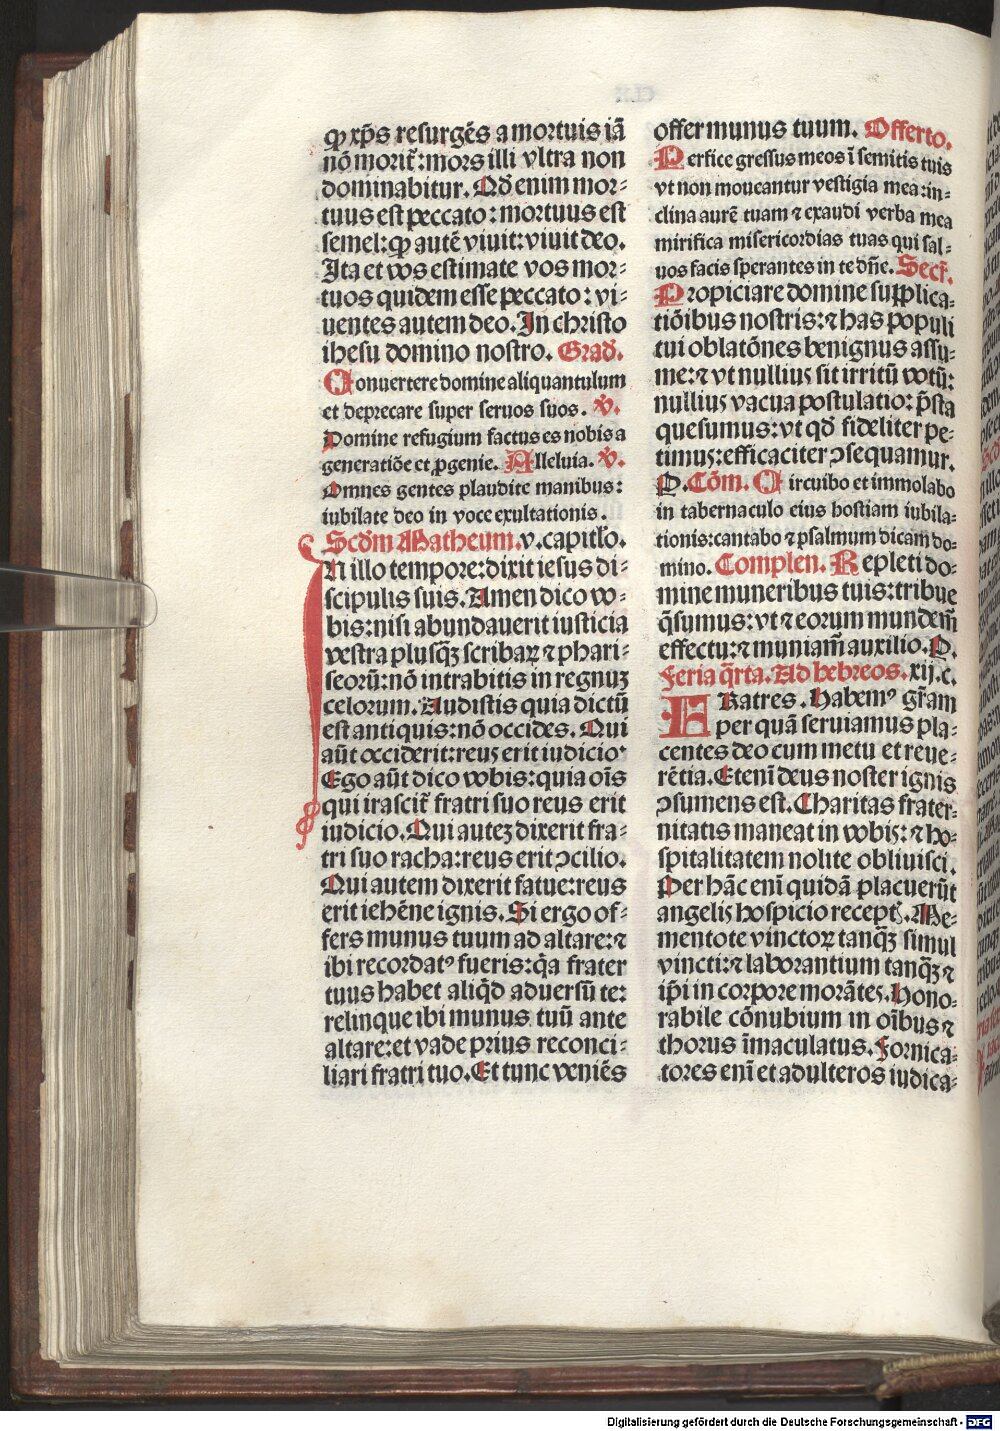 ꝙ xp̄s resurgēs a mortuis iā
nō morit᷑: mors illi vltra non
dominabitur. Qd̓ enim mor⸗
tuus est peccato: mortuus est
semel: ꝙ autē viuit: viuit deo.
Ita et vos estimate vos mor⸗
tuos quidem esse peccato: vi⸗
uentes autem deo. In christo
ihesu domino nostro. Grad̓.
Conuertere domine aliquantulum
et deprecare super seruos suos. v̓.
Domine refugium factus es nobis a
generatiōe et ꝓgenie. Alleluia. v̓.
Omnes gentes plaudite manibus:
iubilate deo in voce exultationis.
Scd̓m Matheum. v. capitl̓o.
In illo tempore: dixit iesus di⸗
scipulis suis. Amen dico vo⸗
bis: nisi abundauerit iusticia
vestra plusq̄ꝫ scribaꝝ ⁊ phari⸗
seorū: nō intrabitis in regnuꝫ
celorum. Audistis quia dictū
est antiquis: nō occides. Qui
aūt occiderit: reus erit iudicio.
Ego aūt dico vobis: quia oīs
qui irascit᷑ fratri suo reus erit
iudicio. Qui auteꝫ dixerit fra⸗
tri suo racha: reus erit ↄcilio.
Qui autem dixerit fatue: reus
erit iehēne ignis. Si ergo of⸗
fers munus tuum ad altare: ⁊
ibi recordatꝰ fueris: q̄a frater
tuus habet aliq̄d aduersū te:
relinque ibi munus tuū ante
altare: et vade prius reconci⸗
liari fratri tuo. Et tunc veniēs
offer munus tuum. Offerto.
Perfice gressus meos ī semitis tuis
vt non moueantur vestigia mea: in⸗
clina aurē tuam ⁊ exaudi verba mea
mirifica misericordias tuas qui sal⸗
uos facis sperantes in te dn̄e. Secr̄.
Propiciare domine supplica⸗
tiōibus nostris: ⁊ has populi
tui oblatōnes benignus assu⸗
me: ⁊ vt nullius sit irritū votū:
nullius vacua postulatio: p̄sta
quesumus: vt qd̓ fideliter pe⸗
timus: efficaciter ↄsequamur.
P. Cōm. Circuibo et immolabo
in tabernaculo eius hostiam iubila⸗
tionis: cantabo ⁊ psalmum dicam do⸗
mino. Complen. Repleti do⸗
mine muneribus tuis: tribue
q̄sumus: vt ⁊ eorum mundem̄
effectu: ⁊ muniam̄ auxilio. P.
Feria q̄rta. Ad hebreos. xij. c.
FRatres. Habemꝰ gr̄am
per quā seruiamus pla⸗
centes deo cum metu et reue⸗
rētia. Etenī deus noster ignis
ↄsumens est. Charitas frater⸗
nitatis maneat in vobis: ⁊ ho⸗
spitalitatem nolite obliuisci.
Per hāc enī quidā placuerūt
angelis hospicio recepti. Me⸗
mentote vinctoꝝ tanq̄ꝫ simul
vincti: ⁊ laborantium tanq̄ꝫ ⁊
ip̄i in corpore morātes. Hono⸗
rabile cōnubium in oībus ⁊
thorus īmaculatus. Fornica⸗
tores enī et adulteros iudica⸗
Digitalisierung gefördert durch die Deutsche Forschungsgemeinschaft - DFG